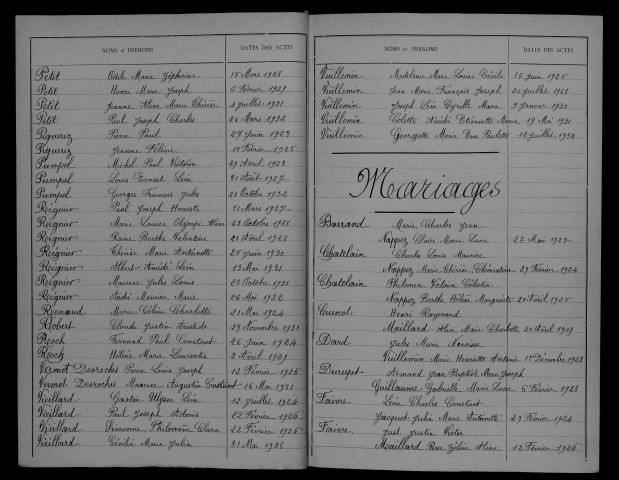 NOMS et PRÉNOMS DATES DES ACTES
Petit Odile Marie Zéphirine 15 Mars 1928
Petit Henri Marie Joseph 6 Février 1929
Petit Jeanne Aline Marie Thérèse 4 Juillet 1931
Petit Paul Joseph Charles 26 Mars 1932
Piguerez Pierre Paul 27 Juin 1923
Piguerez Jeanne Félicie 10 Février 1925
Pumpel Michel Paul Victorin 29 Avril 1923
Pumpel Louis Ernest Léon 21 Août 1927
Pumpel Georges François Jules 21 Octobre 1932
Régnier Paul Joseph Honoste 31 Mars 1927
Régnier Marie Louise Olympe Aline 23 Octobre 1928
Régnier Rane Berthe Valentine 21 Avril 1928
Régnier Thérèse Marie Antoinette 25 Juin 1930
Régnier Albert Amédé Léon 13 Mai 1931
Régnier Maurice Jules Louis 23 Octobre 1931
Régnier André Maurice Marie 06 Mai 1932
Renaud Marie Céline Charlotte 21 Mai 1924
Robert Claude Justin Aristide 29 Novembre 1921
Roch Fernand Paul Constant 26 Juin 1924
Roch Hélène Marie Laurentie 2 Avril 1929
Vermot Desroches Pierre Louis Joseph 12 Février 1926
Vermot Desroches Maurice Augustin Constant 16 Mai 1931
Vieillard Gaston Ulysse Léon 12 Juillet 1924
Vieillard Paul Joseph Adonis 22 Février 1926
Vieillard Simonne Philomène Clara 22 Février 1926
Vieillard Cécile Marie Julia 31 Mai 1928
NOMS et PRÉNOMS DATES DES ACTES
Vuillemin Madeleine Marie Louise Cécile 15 Juin 1925
Vuillemin Jean Marie François Joseph 20 Juillet 1928
Vuillemin Joseph Léon Cyrille Marie 9 Janvier 1930
Vuillemin Colette Amélie Étiennette Marie 19 Mai 1931
Vuillemin Georgette Marie Eva Paulette 18 Juillet 1932
Mariages
Barrand Marie Charles Jean
Nappez Claire Marie Lucie 27 Mai 1927
Chatelain Charles Louis Maurice
Nappez Marie Thérèse Clémentine 29 Février 1924
Chatelain Philémon Victorin Célestin
Nappez Berthe Hélène Marguerite 20 Avril 1925
Cuenot Henri Raymond
Maillard Aline Marie Charlotte 20 Avril 1929
Dard Jules Marie Narcisse
Vuillemin Marie Henriette Antonia 1er Décembre 1923
Durupt Armand Jean Baptiste Marie Joseph
Guillaume Gabrielle Marie Lucie 6 Février 1928
Faivre Léon Charles Constant
Jacquot Julia Marie Antoinette 29 Février 1924
Faivre Just Justin Victor
Maillard Rose Zéline Aline 12 Février 1926